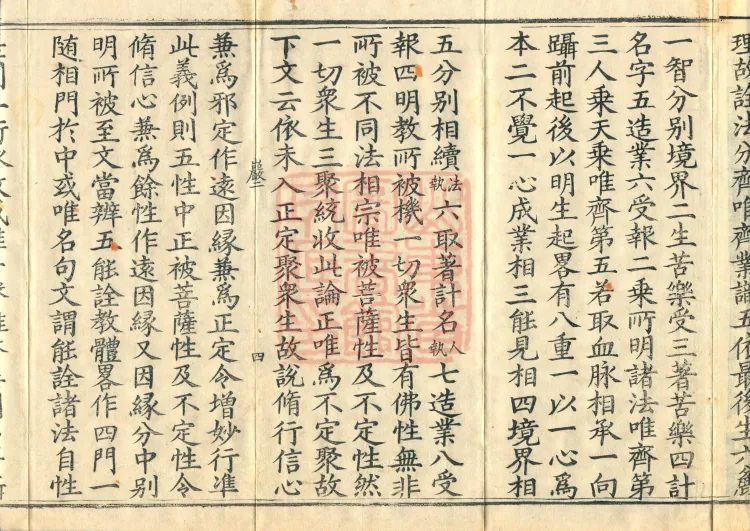 理故詮法分齊唯齊業論五依最後生六麤
一智分別境界二生苦樂受三著苦樂四計
名字五造業六受報二乘所明諸法唯齊第
三人乘天乘唯齊第五若取血脉相承一向
躡前起後以明生起畧有八重一以一心爲
本二不覺一心成業相三能見相四境界相
五分別相續法執六取著計名人執七造業八受
報四明教所被機一切衆生皆有佛性無非
所被不同法相宗唯被菩薩性及不定性然
一切衆生三聚統收此論正唯爲不定聚故
下文云依未入正定聚衆生故說脩行信心
巖二 四
兼爲邪定作遠因緣兼爲正定令增妙行准
此義例則五性中正被菩薩性及不定性令
脩信心兼爲餘性作遠因緣又因緣分中別
明所被至文當辨五能詮教體畧作四門一
随相門於中或唯名句文謂能詮諸法自性